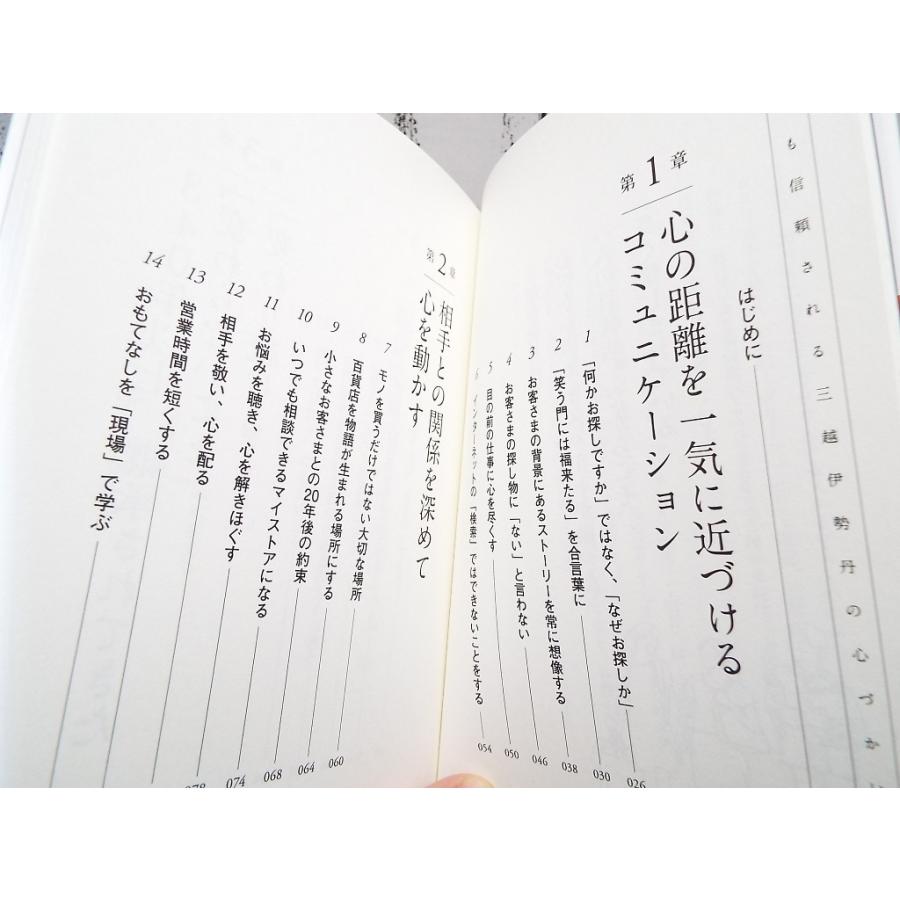 も信頼される三越伊勢丹の心づか
はじめに
第1章
心の距離を一気に近づける
コミュニケーション
1 「何かお探しですか」ではなく、「なぜお探しか」 026
2 「笑う門には福来たる」を合言葉に 030
3 お客さまの背景にあるストーリーを常に想像する 038
4 お客さまの探し物に「ない」と言わない 046
5 目の前の仕事に心を尽くす 050
6 インターネットの「検索」ではできないことをする 054
第2章
相手との関係を深めて
心を動かす
7 モノを買うだけではない大切な場所
8 百貨店を物語が生まれる場所にする 060
9 小さなお客さまとの20年後の約束 064
10 いつでも相談できるマイストアになる 068
11 お悩みを聴き、心を解きほぐす 074
12 相手を敬い、心を配る 078
13 営業時間を短くする
14 おもてなしを「現場」で学ぶ